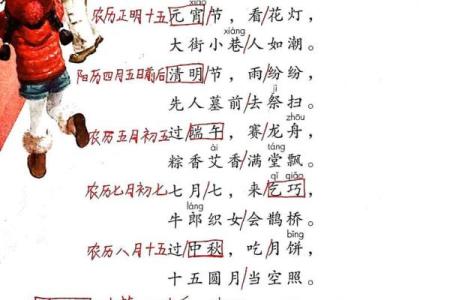 xiāo
农历正明十五元宵节，看花灯，
xiàng
大街小巷人如潮。
阳历四月五日前后清明节，雨纷纷，
jì
先人墓前去祭扫。
zhōu
农历五月初五过端午，赛龙舟，
ài táng
粽香艾香满堂飘。
qǐ qiǎo
农历七月初七七月七，来乞巧，
láng
牛郎织女会鹊桥。
bǐng
农历八月十五过中秋，吃月饼，
十五圆月当空照。